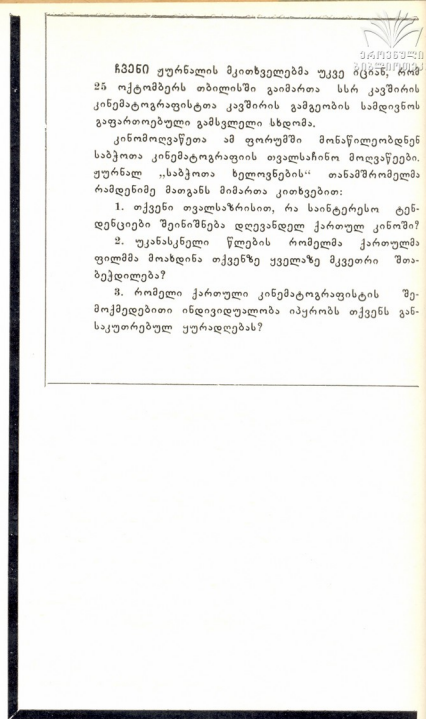 ეროვნული
ბიბლიოთეკა
ჩვენი ჟურნალის მკითხველებმა უკვე იციან, რომ
25 ოქტომბერს თბილისში გაიმართა სსრ კავშირის
კინემატოგრაფისტთა კავშირის გამგეობის სამდივნოს
გაფართოებული გამსვლელი სხდომა.
კინომოღვაწეთა ამ ფორუმში მონაწილეობდნენ
საბჭოთა კინემატოგრაფიის თვალსაჩინო მოღვაწეები.
ჟურნალ „საბჭოთა ხელოვნების“ თანამშრომელმა
რამდენიმე მათგანს მიმართა კითხვებით:
1. თქვენი თვალსაზრისით, რა საინტერესო ტენ-
დენციები შეინიშნება დღევანდელ ქართულ კინოში?
2. უკანასკნელი წლების რომელმა ქართულმა
ფილმმა მოახდინა თქვენზე ყველაზე მკვეთრი შთა-
ბეჭდილება?
3. რომელი ქართული კინემატოგრაფისტის შე-
მოქმედებითი ინდივიდუალობა იპყრობს თქვენს გან-
საკუთრებულ ყურადღებას?